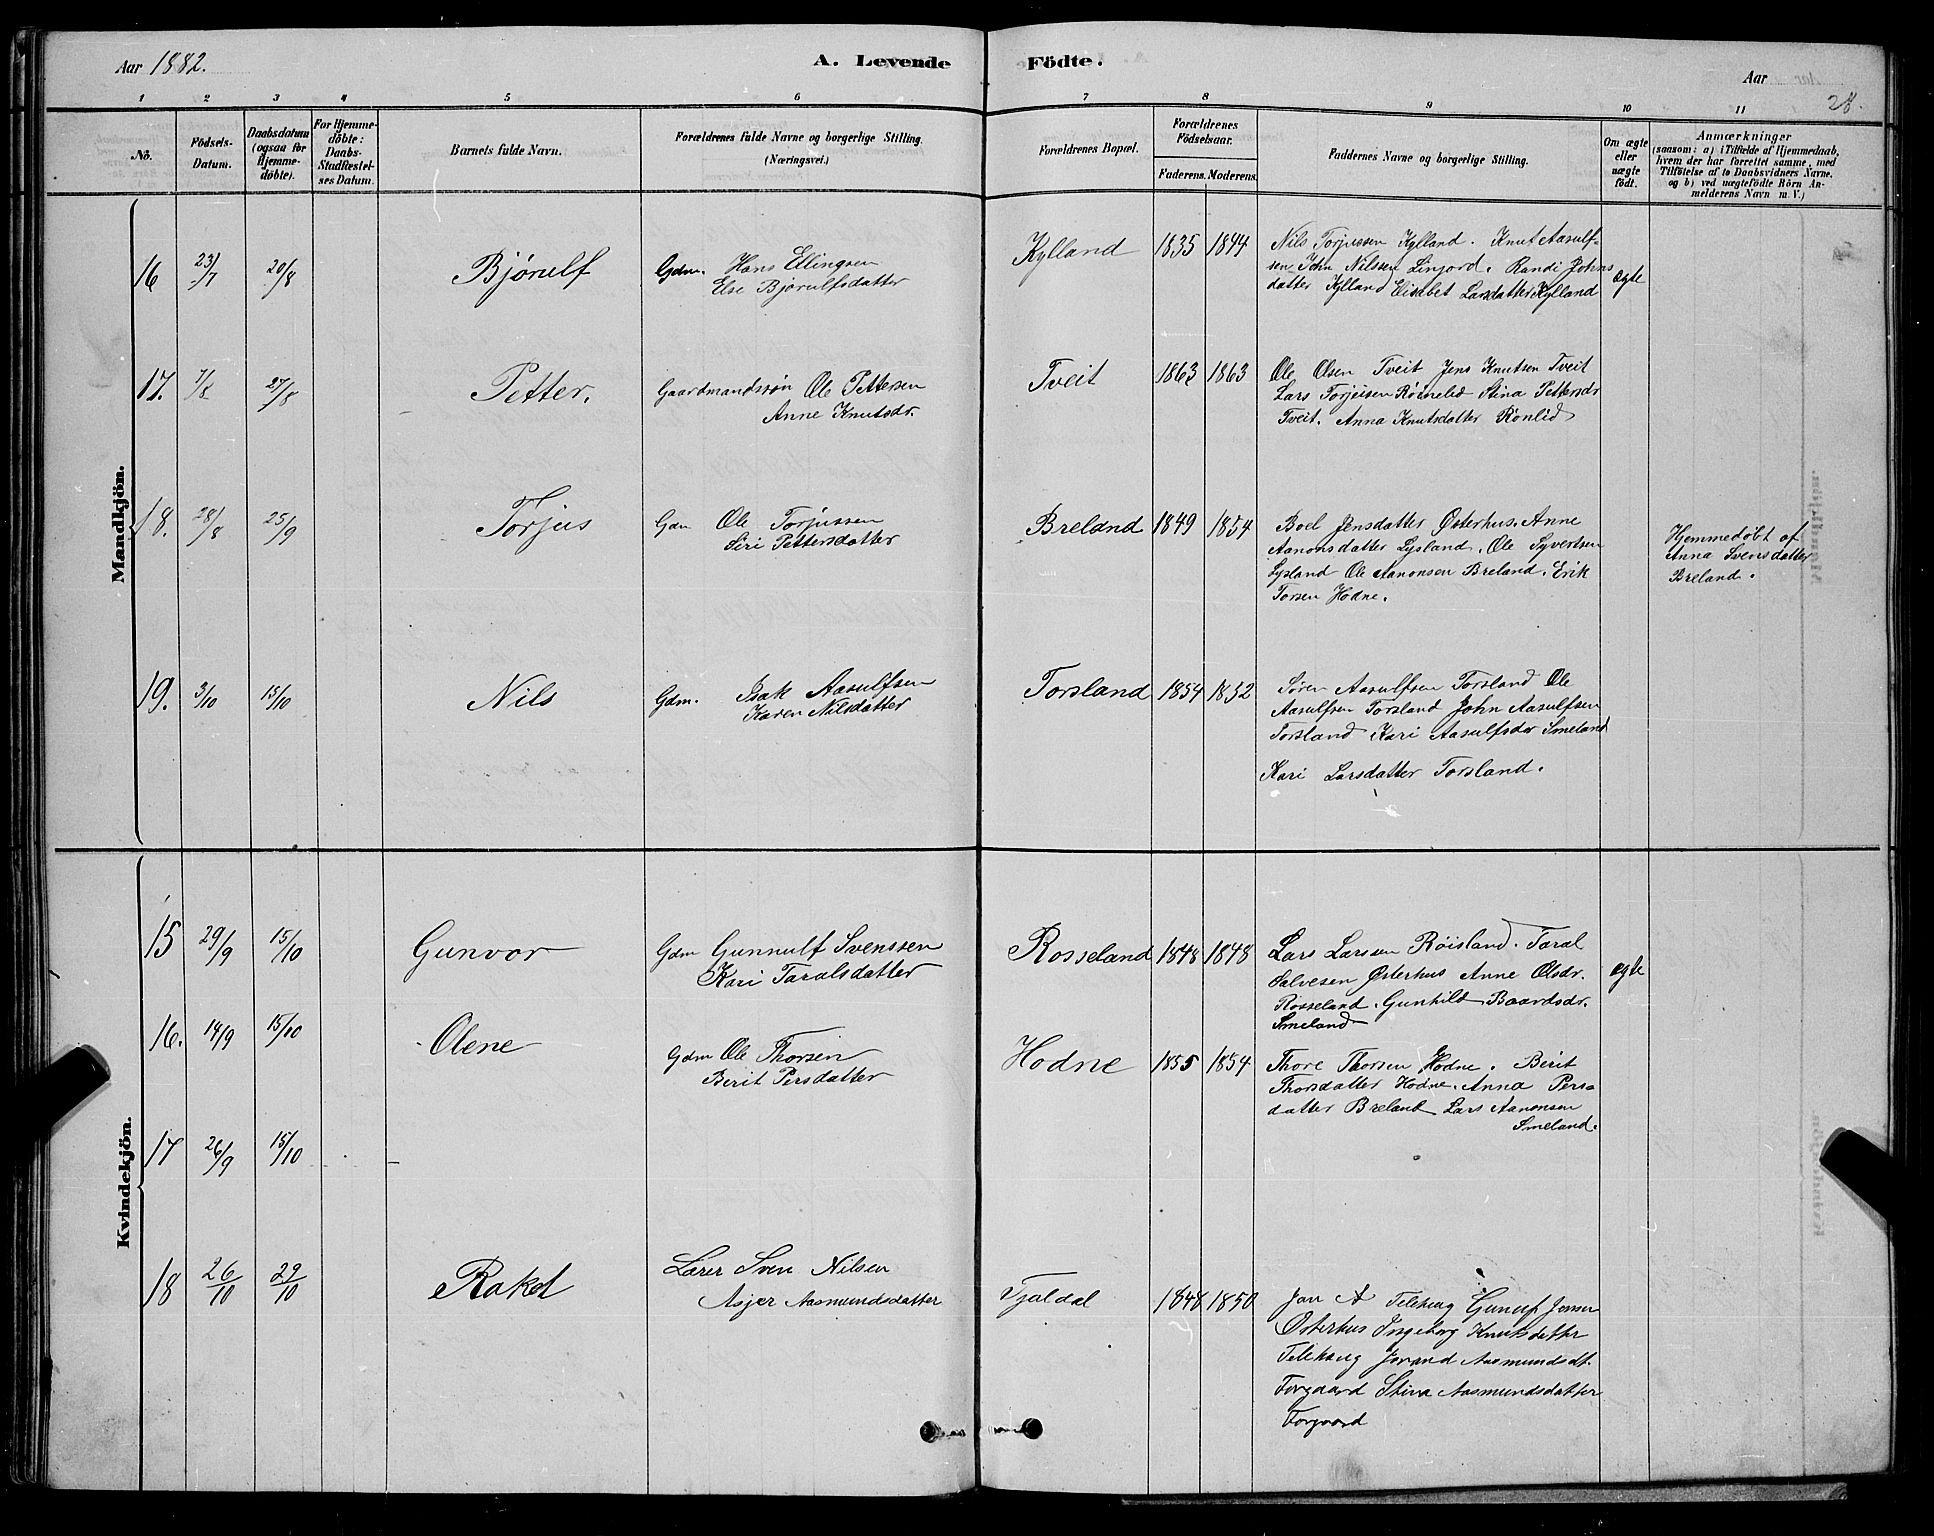 Aar 1882.
A. Levende Födte.
Aar
28.
1 2 3 4 5 6 7 8 9 10 11
No.
Födsels-
Datum.
Daabsdatum
(ogsaa for
Hjemme-
döbte).
For Hjemme-
döbte:
Daabs-
Stadfæstel-
ses Datum.
Barnets fulde Navn.
Forældrenes fulde Navne og borgerlige Stilling.
(Næringsvei.)
Forældrenes Bopæl.
Forældrenes
Födselsaar.
Faderens. Moderens.
Faddernes Navne og borgerlige Stilling.
Om ægte
eller
uægte
födt.
Anmærkninger
(saasom: a) i Tilfælde af Hjemmedaab,
hvem der har forrettet samme, med
Tilföielse af to Daabsvidners Navne.
og b) ved uægtefödte Börn An-
melderens Navn m. V.)
Mandkjön.
16 23/7 20/8 Bjørulf
Gdm. Hans Ellingsen
Else Bjørulfsdatter
Kylland 1835 1844
Nils Torjussen Kylland. Knut Aasulf-
sen John Nilssen Linjord. Randi Johns
datter Kylland Elisabet Larsdatter Kylland
ægte
17. 7/8 27/8 Petter.
Gaardmandssøn Ole Pettersen
Anne Knutsdr.
Tveit 1863 1863
Ole Olsen Tveit Jens Knutsen Tveit
Lars Torjeisen Rønelid Stina Pettersdr
Tveit. Anna Knutsdatter Rönlid
18. 28/8 25/9 Torjus
Gdm Ole Torjussen
Siri Pettersdatter
Breland 1849 1854
Boel Jensdatter Østerhus. Anne
Aanonsdatter Lysland. Ole Syvertsen
Lysland Ole Aanonsen Breland. Erik
Torsen Hodne.
Hjemmedøbt af
Anna Svensdatter
Breland.
19. 3/10 15/10 Nils
Gdm. Isak Aasulfsen
Karen Nilsdatter
Torsland 1854 1852
Søren Aasulfsen Torsland Ole
Aasulfsen Torsland John Aasulfsen
Torsland Kari Aasulfsdr Smeland
Kari Larsdatter Torsland.
Kvindekjön.
15 29/9 15/10 Gunvor
Gdm Gunnulf Svenssen
Kari Taralsdatter
Rosseland 1848 1848
Lars Larssen Røisland. Taral
Salvesen Østerhus Anne Olsdr.
Rosseland. Gunhild Baardsdr.
Smeland
ægte
16. 14/9 15/10 Olene
Gdm Ole Thorsen
Berit Persdatter
Hodne 1855 1854
Thore Thorsen Hodne. Berit
Thorsdatter Hodne. Anna Pers-
datter Breland Lars Aanonsen
Smeland.
17 26/9 15/10 –
18 26/10 29/10 Rakel
Lærer Sven Nilsen
Asjer Aasmundsdatter
Tjaldal 1848 1850
Jon A Telehaug Gunuf Jonsen
Østerhus Ingeborg Knutsdatter
Telehaug Jorand Aasmundsdt.
Torgaard Stina Aasmundsdatter
Torgaard